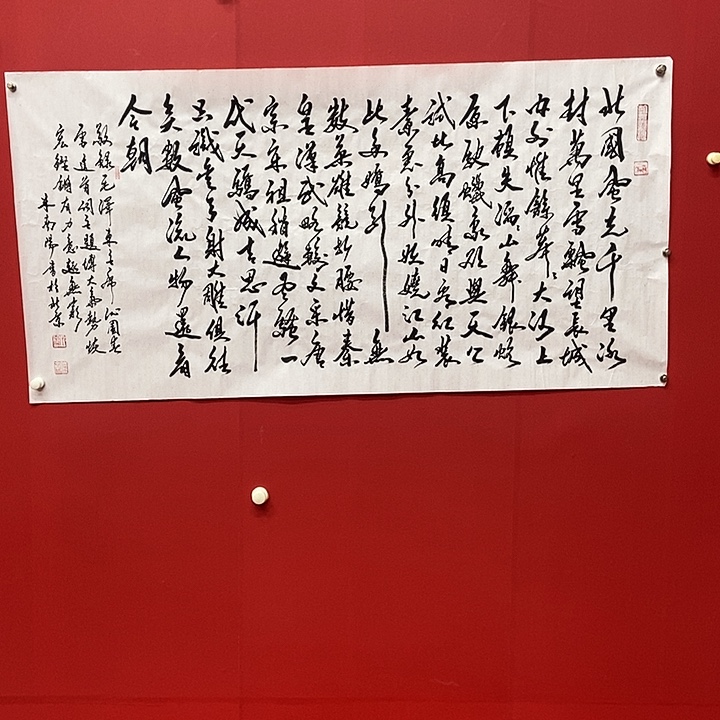 北國風光千里冰
封萬里雪飄望長城
内外惟餘莽〻大河上
下頓失滔〻山舞銀蛇
原馳蠟象欲與天公
試比高須晴日看紅裝
素裹分外妖嬈江山如
此多嬌引無
數英雄競折腰惜秦
皇漢武略輸文采唐
宗宋祖稍遜風騷一
代天驕成吉思汗
只識彎弓射大雕俱往
矣數風流人物還看
今朝
敬錄毛澤東主席沁園春
雪這首詞主題博大氣勢恢
宏鏗鏘有力意趣無窮
書於北京